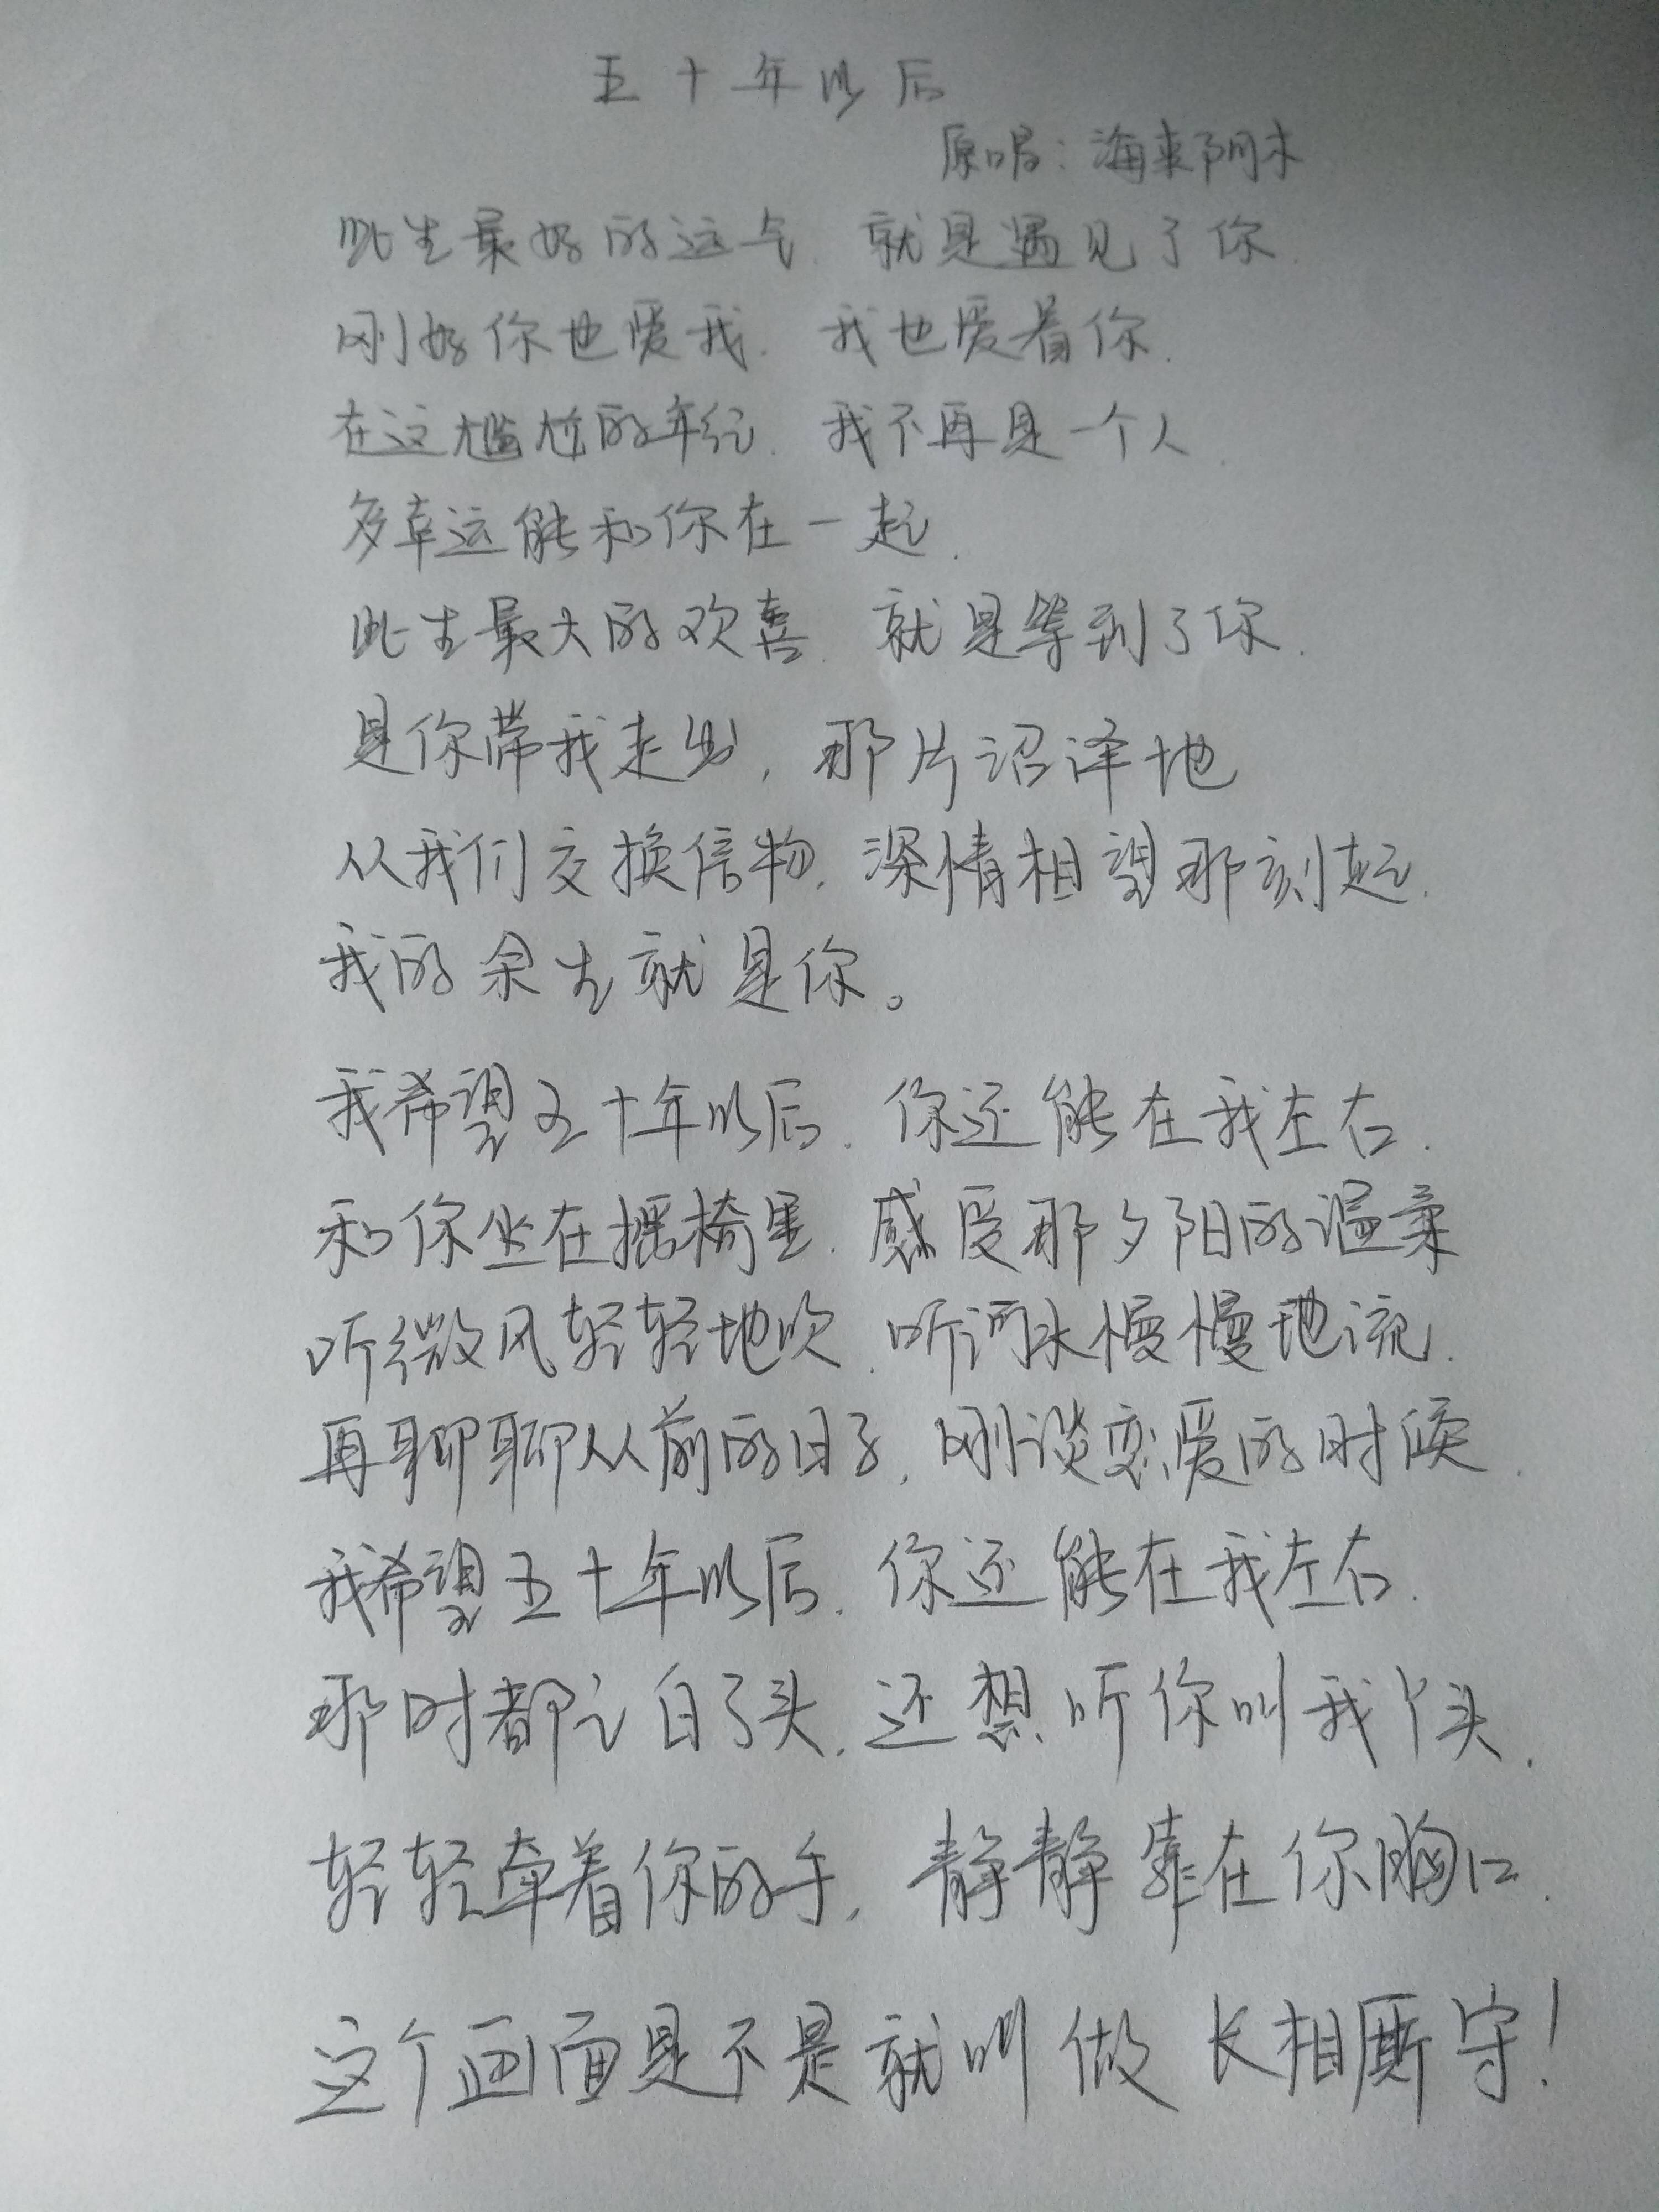 五十年以后
原唱：海来阿木
此生最好的运气.就是遇见了你.
刚好你也爱我.我也爱着你.
在这尴尬的年纪.我不再是一个人.
多幸运能和你在一起.
此生最大的欢喜.就是等到了你.
是你带我走出,那片沼泽地
从我们交换信物.深情相望那刻起.
我的余生就是你。
我希望五十年以后.你还能在我左右.
和你坐在摇椅里.感受那夕阳的温柔
听微风轻轻地吹.听河水慢慢地流.
再聊聊从前的日子,刚谈恋爱的时候.
我希望五十年以后.你还能在我左右.
那时都已白了头.还想听你叫我丫头.
轻轻牵着你的手,静静靠在你胸口.
这个画面是不是就叫做长相厮守!